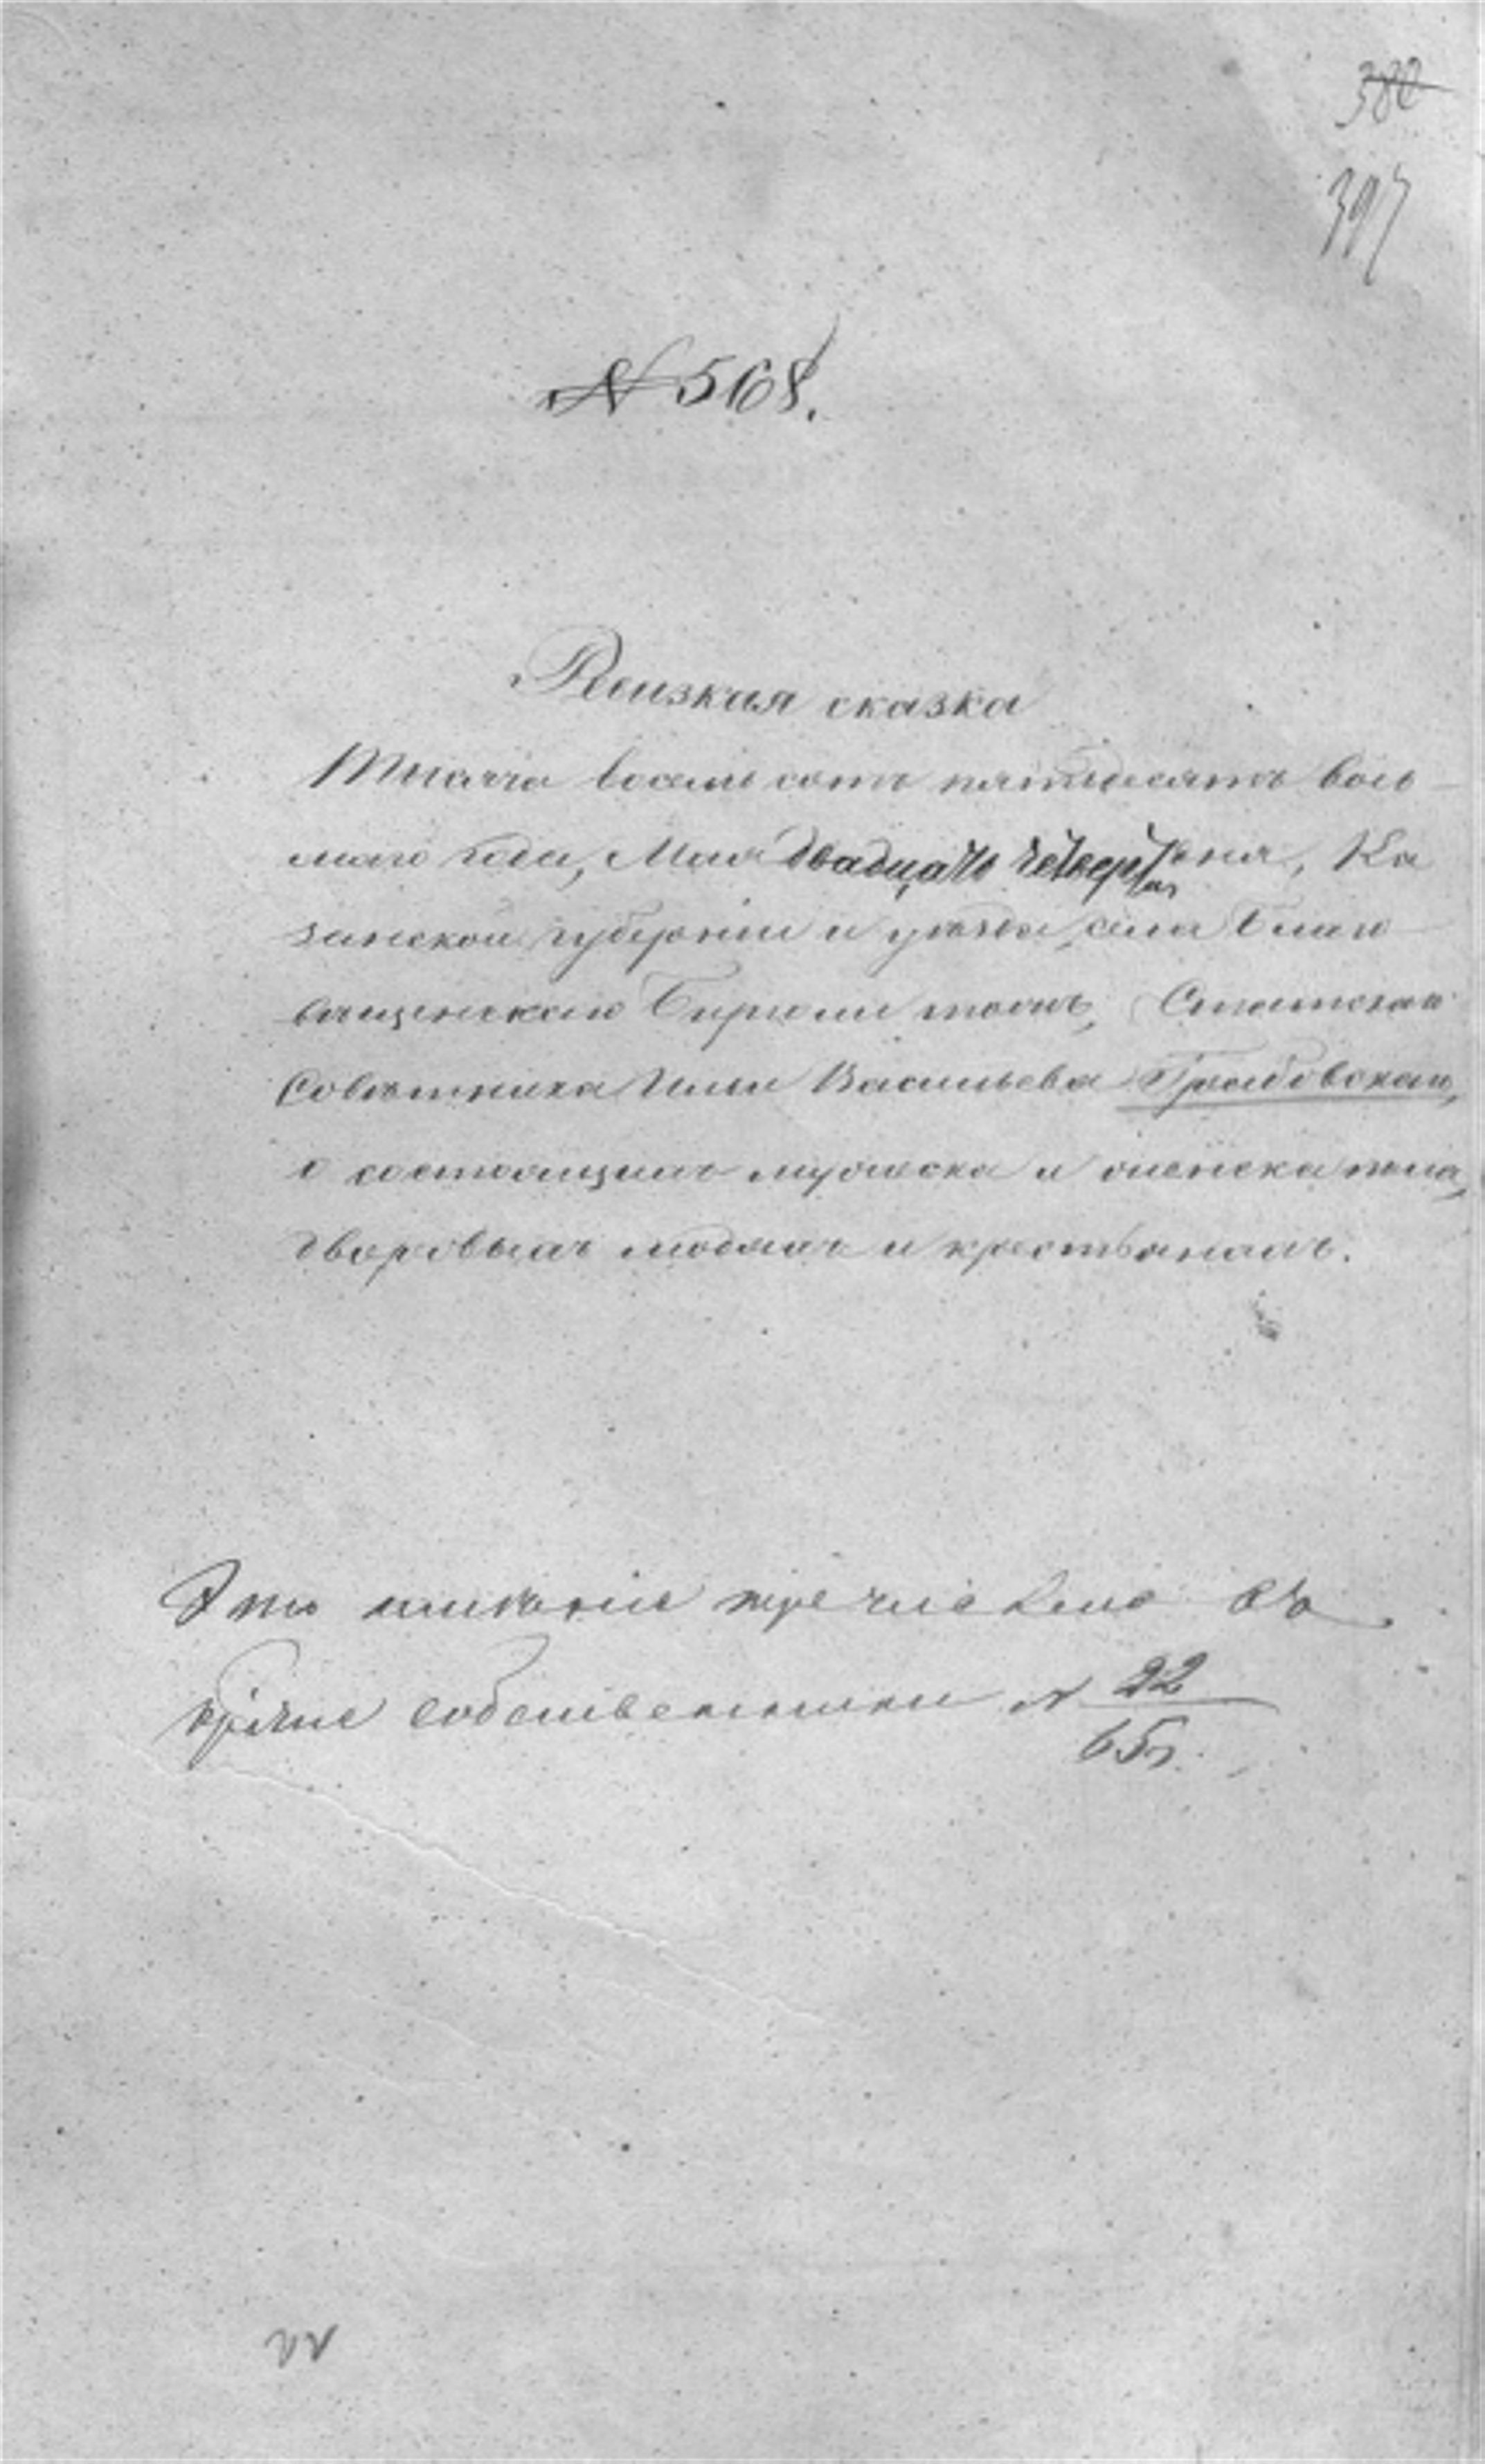 380
397
№ 568.
Ревизкая сказка
Тысяча восемь сотъ пятьдесятъ вось
маго года, Мая двадцать четвертаго дня, Ка
занской губерніи и уѣзда, села Благо
вѣщенскаго тожъ, Статскаго
Совѣтника Ильи Васильева
о состоящихъ мужеска и женска пола,
дворовыхъ людяхъ и крестьянахъ.
Это имѣніе перечислено въ
крѣстне собственники № 22
65г.